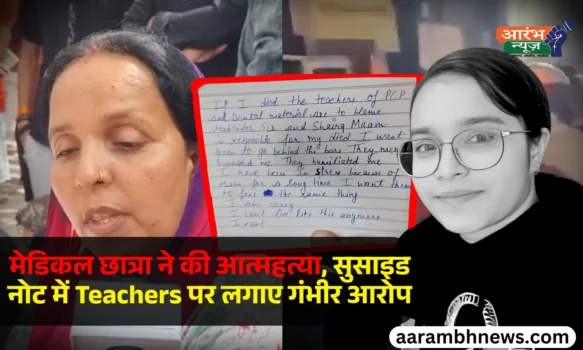 आरंभ
न्यूज़
If I died the teachers of PCP
and Dental material are to blame
Mahinder Sir and Shairg Maam
is responsible for my died I want
them to go behind the bars They mentally
harassed me. They humiliated me
I have been in stress because of
them for so long time I want them
to face the same thing
I am sorry
I can't live like this anymore
I can't
मेडिकल छात्रा ने की आत्महत्या, सुसाइड
नोट में Teachers पर लगाए गंभीर आरोप
aarambhnews.com